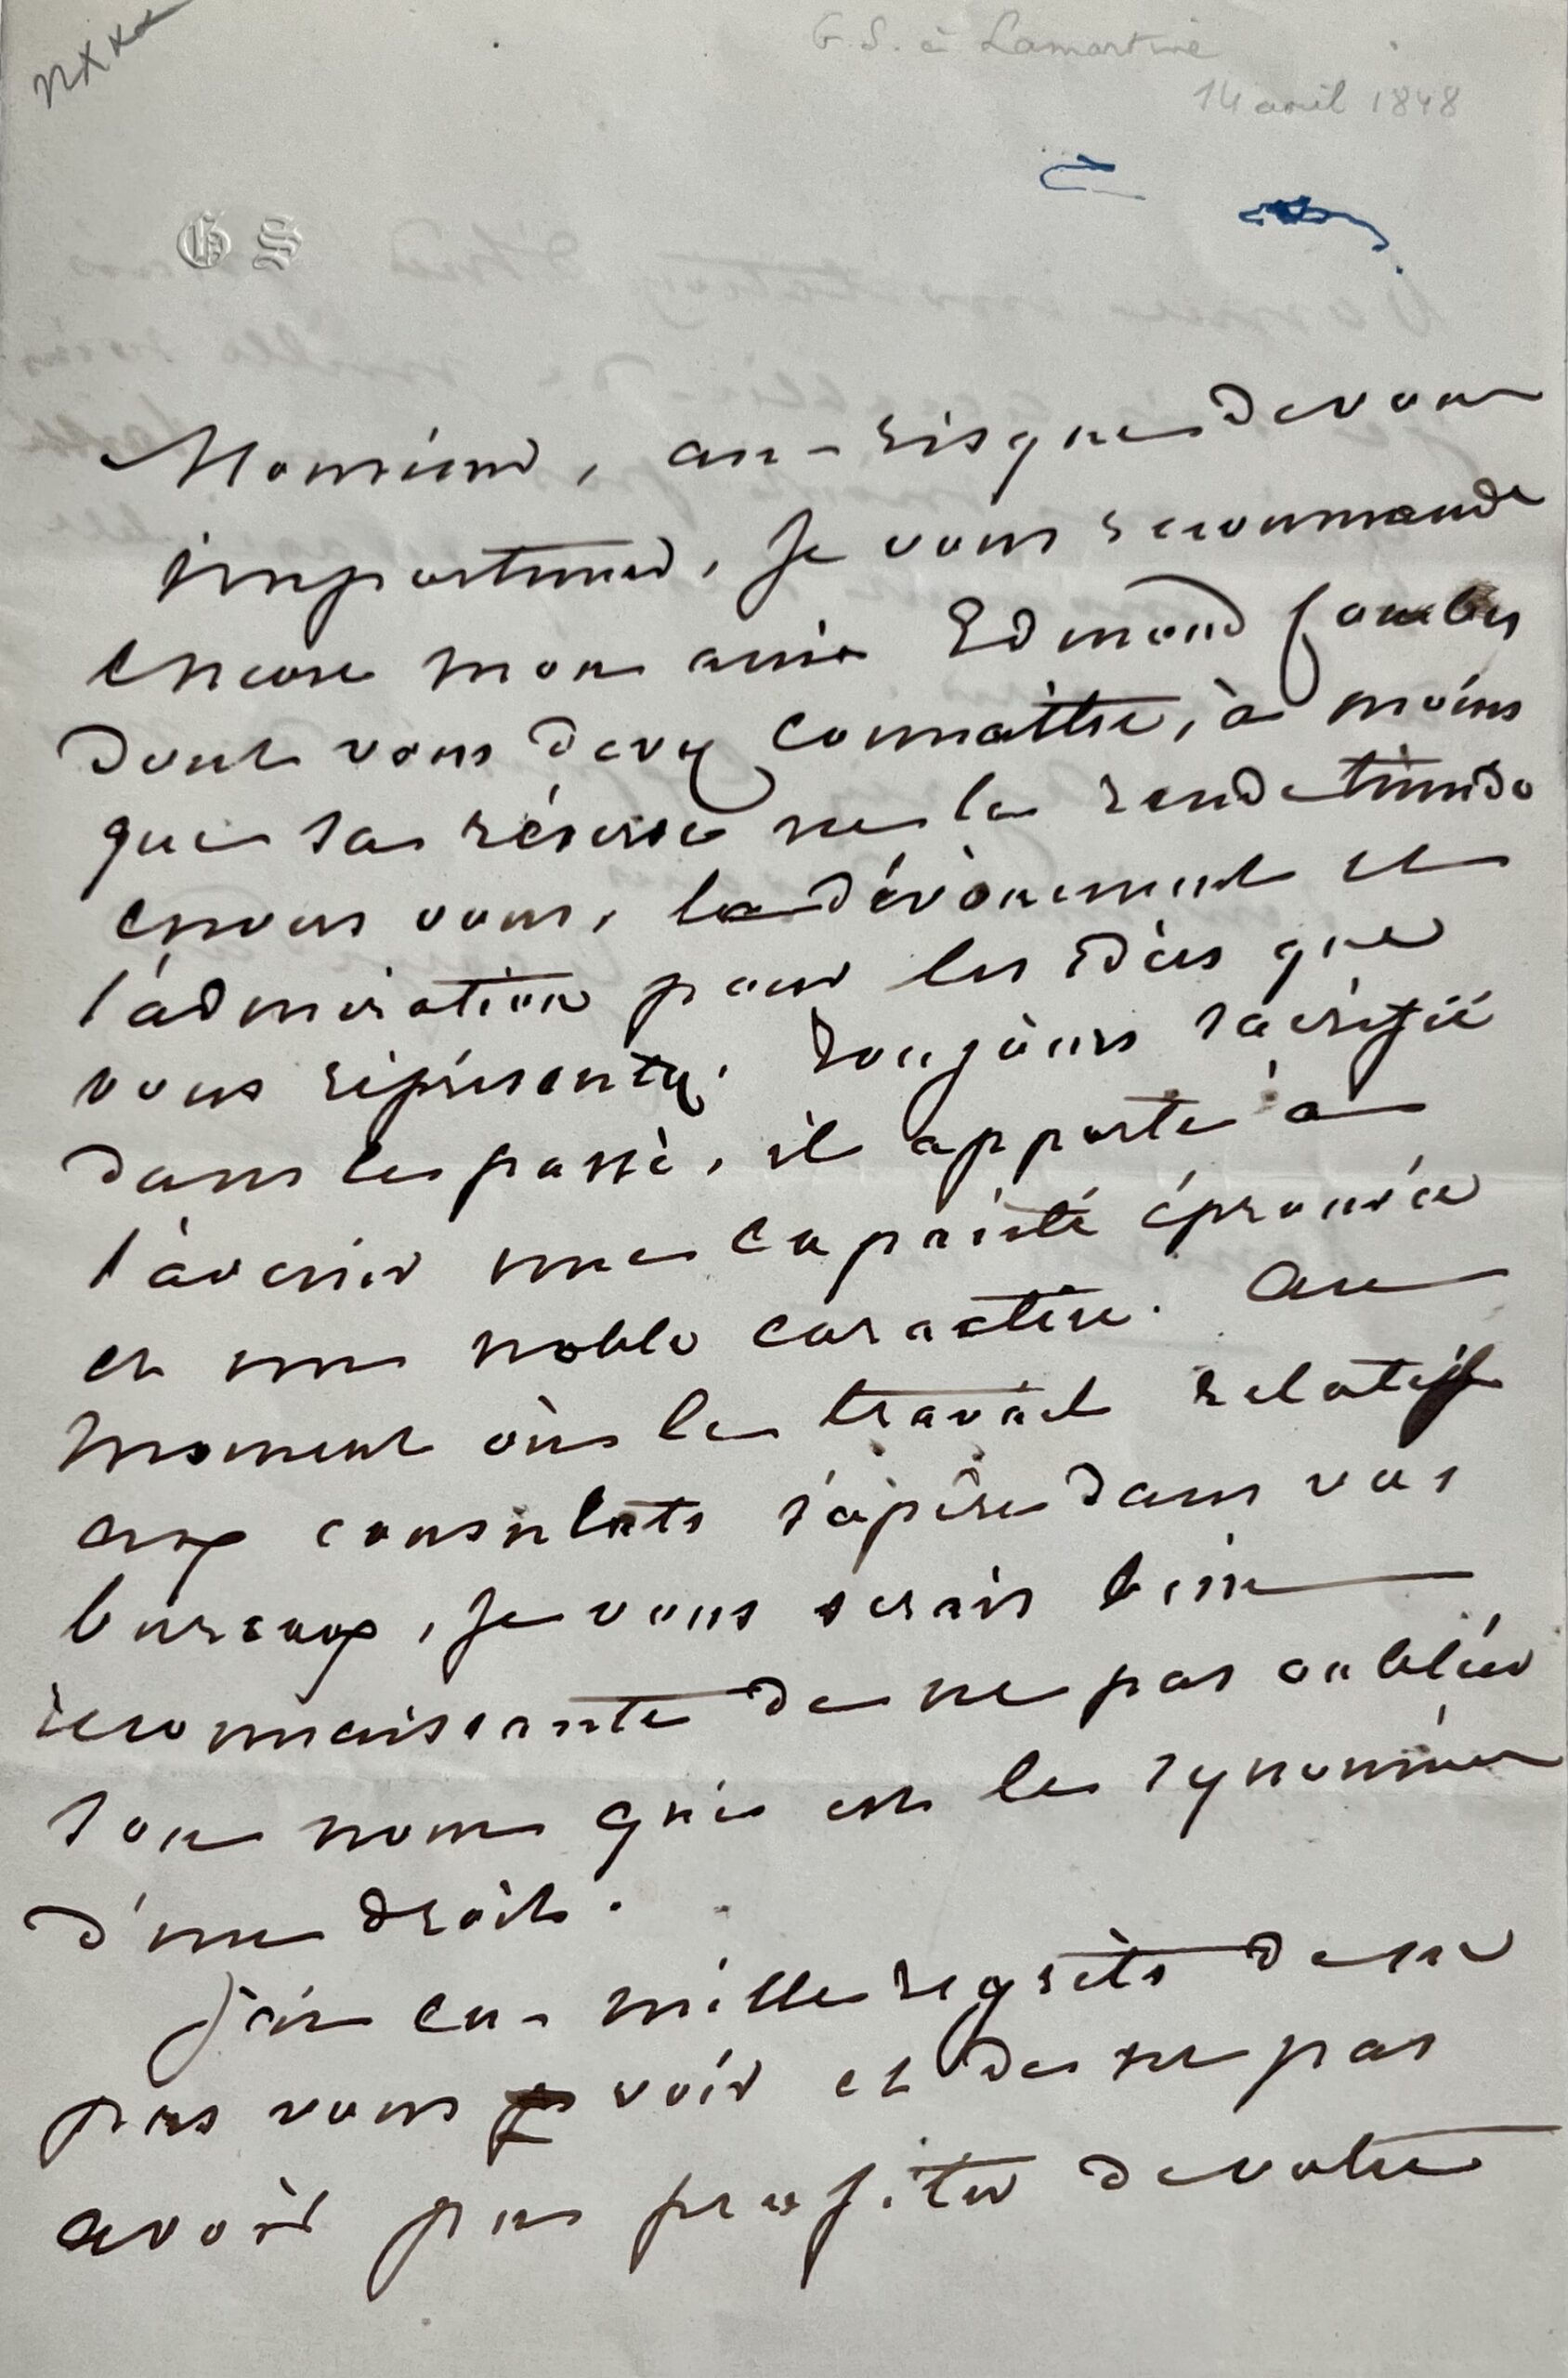 G. S. à Lamartine
14 avril 1848
G S
Monsieur, au risque de vous
importuner, je vous recommande
encore mon ami Edmond Combes
dont vous devez connaître, à moins
que sa réserve ne le rende timide
envers vous, le dévouement et
l'admiration pour les idées que
vous représentez. Toujours sacrifié
dans le passé, il apporte à
l'avenir une capacité éprouvée
et un noble caractère. Au
moment où le travail relatif
aux consulats s'opère dans vos
bureaux, je vous serais bien
reconnaissante de ne pas oublier
son nom qui est le synonime
d'un droit.
J'ai eu mille regrets de ne
pas vous voir et de ne pas
avoir pu profiter de votre